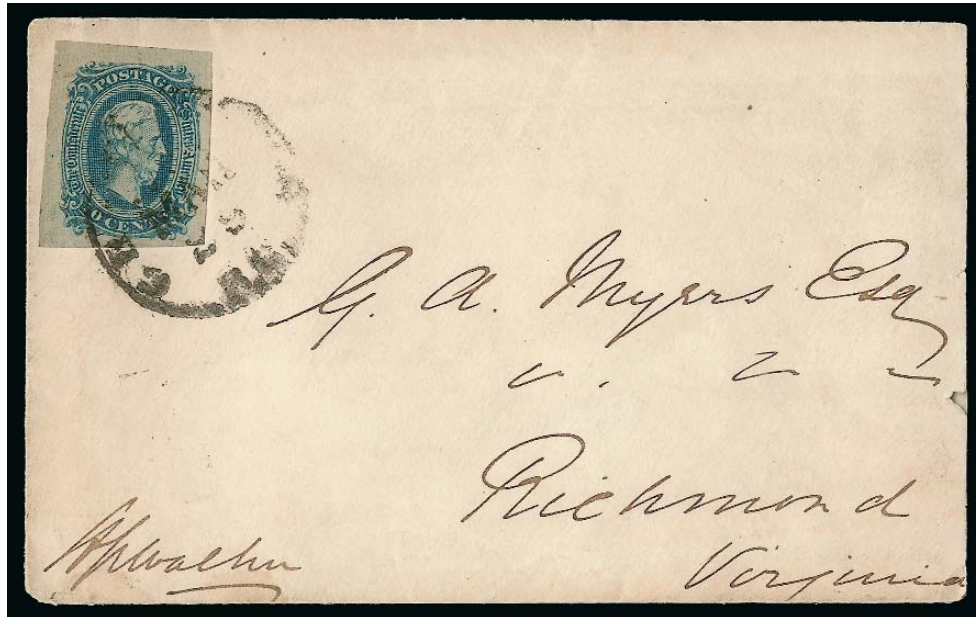 POSTAGE
The Confederate States America
10 CENTS
G. A. Myers Esq
Richmond
Virginia